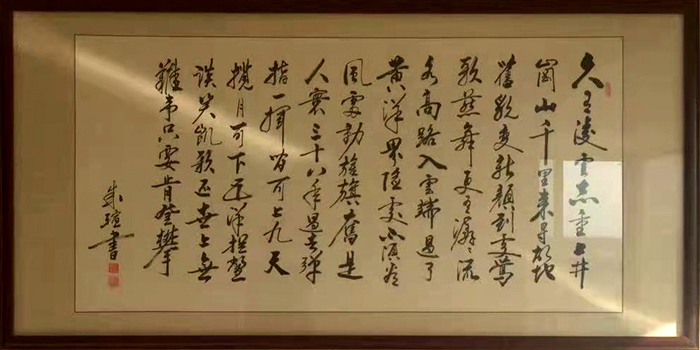 久有凌雲志重上井
崗山千里來尋故地
舊貌變新顏到處鶯
歌燕舞更有潺潺流
水高路入雲端過了
黄洋界險處不須看
風雷動旌旗奮是
人寰三十八年過去彈
指一揮間可上九天
攬月可下五洋捉鱉
談笑凱歌還世上無
難事只要肯登攀
朱瑄書